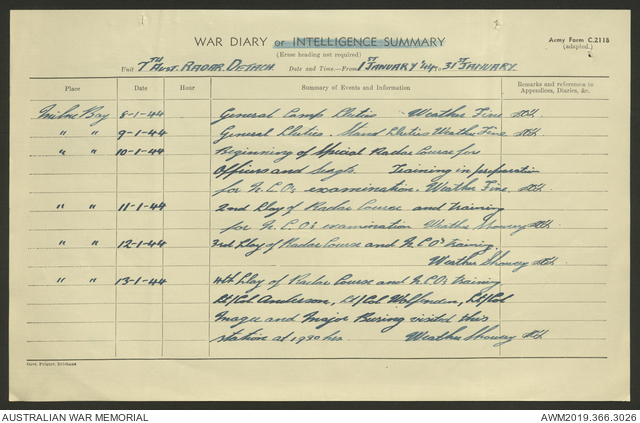 WAR DIARY or INTELLIGENCE SUMMARY
Army Form C.2118
(adapted.)
(Erase heading not required)
Unit 7TH AUST. RADAR. DETACH. Date and Time.—From 1ST JANUARY '44 31ST JANUARY.
Place Date Hour Summary of Events and Information Remarks and references to Appendices, Diaries, &c.
Milne Bay 8-1-44 General Camp Duties Weather Fine
" " 9-1-44 General Duties. Stand Duties Weather Fine
" " 10-1-44 Beginning of Special Radar Course for
Officers and Sergts. Training in preparation
for N.C.O's examination. Weather Fine.
" " 11-1-44 2nd Day of Radar Course and Training
for N.C.O's examination Weather Showery
" " 12-1-44 3rd Day of Radar Course and N.C.O's Training.
Weather Showery
" " 13-1-44 4th Day of Radar Course and N.C.O's Training
Lt/Col Anderson, Lt/Col Lt/Col
Magee and Major visited this
station at 1930 hrs Weather Showery
Govt. Printer, Brisbane
AUSTRALIAN WAR MEMORIAL
AWM2019.366.3026